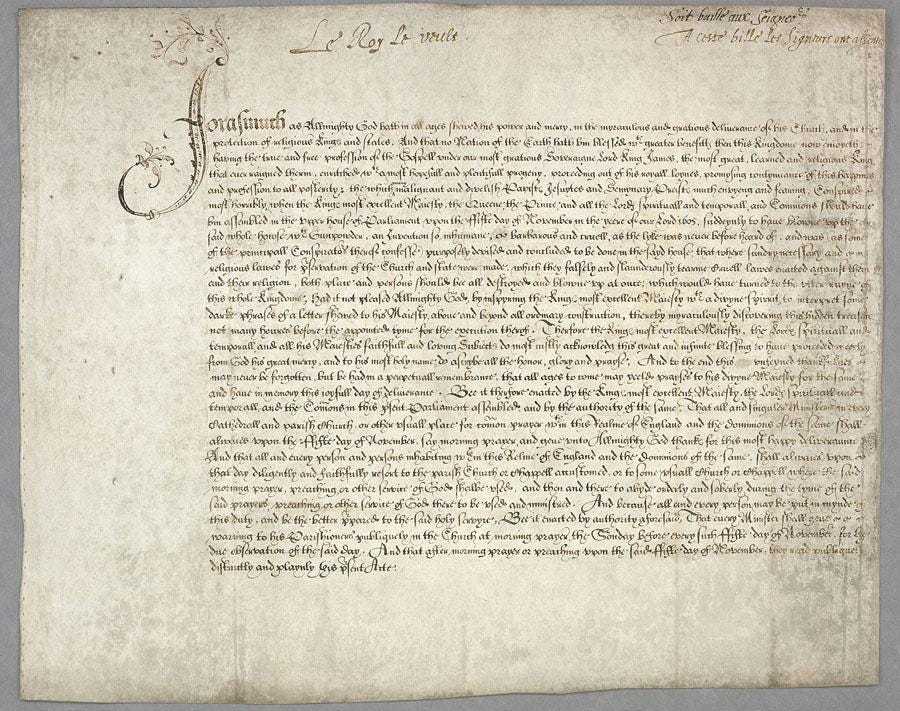 Soit baille aux Seigneurs
Le Roy le veult.
A ceste bille les Signeurs ont assentu
Forasmuch as Allmighty God hath in all ages shewed his power and mercy, in the myraculous and gratious deliverance of his Church, and in the
protection of religious Kings and states, And that no Nation of the Earth hath bin blessed wth greater benefitts then this Kingdome now enioyeth
having the true and free profession of the Gospell under our most gratious Soveraigne Lord King James, the most great, learned and religious King
that ever raigned therin, enritched wth a most hopefull and plentifull progeny, proceeding out of his royall loynes, promysing continuance of this happines
and profession to all posterity: the which malignant and divelish Papists, Jesuytes and Semynary Preists much envyeng and fearing, Conspired
most horribly, when the Kings most excellent Maiesty, the Queene the Prince and all the Lords spirituall and temporall, and Commons should have
bin assembled in the upper house of Parliament upon the fifte day of November in the yeere of our Lord 1605, suddenly to have blowne up the
said whole howse wth Gunpowder, an Invention so inhumane, Barbarous and cruell, as the like was never before heard of, and was as some
of the principall Conspirators therof confesse, purposely devised and concluded to be done in the sayd house, that where sundry necessary and
religious lawes for pservation of the Church and state were made, which they falsely and slaunderously tearme Cruell lawes enacted against them
and their religion, both place and persons should bee all destroyed and blowne up at once, which would have turned to the utter ruyne of
this whole Kingdome, Had it not pleased Allmighty God, by inspyring the Kings most excellent Maiesty wth a divyne spirit, to interpret some
darke phrases of a letter shewed to his Maiesty, above and beyond all ordinary construction, therby myraculously discovering this hidden treason
not many houres before the appointed tyme for the execution therof. Therfore the Kings most excellent Maiesty, the Lords spirituall and
temporall and all his Maiesties faithfull and loving Subiects do most iustly acknowledg this great and infinite blessing to have proceeded meerly
from God his great mercy, and to his most holy name do ascrybe all the honor, glory and prayse. And to the end this unfeyned thankfulnes
may never be forgotten, but be had in a perpetuall remembrance, that all ages to come may yeeld prayses to his divyne Maiesty for the same
and have in memory this ioyfull day of deliverance. Bee it therfore enacted by the Kings most excellent Maiesty, the Lords spirituall and
temporall, and the Comons in this psent Parliament assembled, and by the authority of the same, That all and singuler Ministers in every
Cathedrall and parish Church, or other usuall place for comon prayer wthin this Realme of England and the dominions of the same shall
alwaies upon the fifte day of November, say morning prayer, and geve unto Allmighty God thanks for this most happy deliverance
And that all and every person and persons inhabiting wthin this Realme of England and the dominions of the same, shall alwaies upon
that day diligently and faithfully resort to the parish Church or Chappell accustomed, or to some usuall Church or Chappell where the said
morning prayer, preaching, or other service of God shalbe used, and then and there to abyde orderly and soberly, during the tyme of the
said prayers, preaching, or other service of God there to be used and ministred. And because all and every person may be put in mynde of
this duty, and be the better ppared to the said holy servyce, Bee it enacted by authority aforesaid, That every Minister shall geve
warning to his Parishioners publiquely in the Church at morning prayer, the Sonday before every such fifte day of November, for the
due observation of the said day. And that after morning prayer or preaching upon the said fifte day of November, they read publiquely
distinctly and playnly this psent Acte.